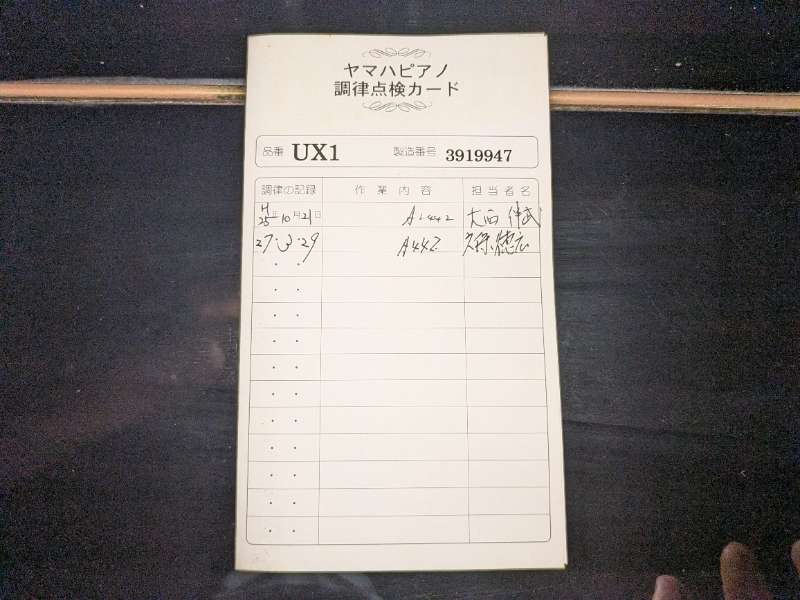 ヤマハピアノ
調律点検カード
品番 UX1 製造番号 3919947
調律の記録 作業内容 担当者名
H25年10月21日 A-442 大西
27・3・29 A442 久保 徳宏